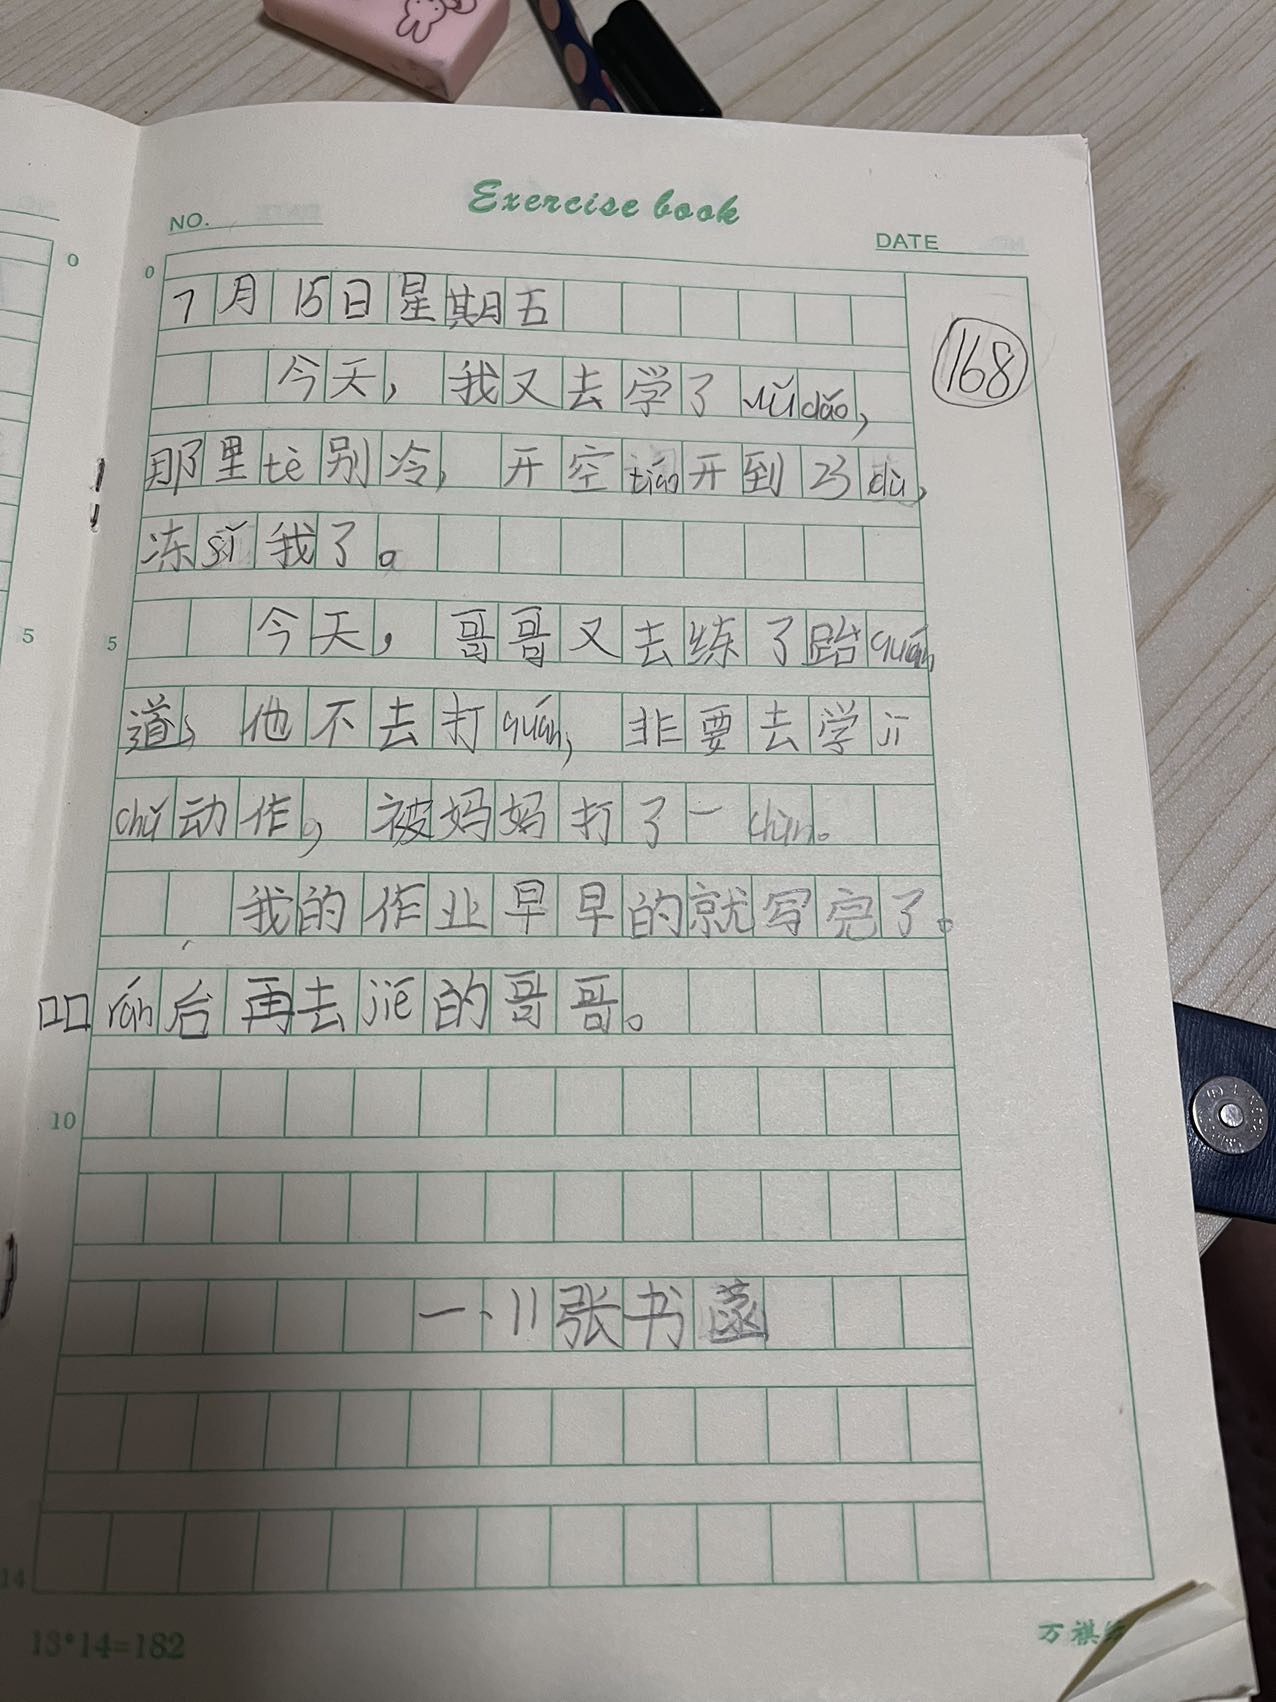 Exercise book
NO.
DATE
0
0
7月15日星期五
168
今天，我又去学了 dǎo，
那里tè别冷，开空tiáo开到23dù，
冻sǐ我了。
5
5
今天，哥哥又去练了跆quán
道，他不去打quán，非要去学jī
chǔ动作，被妈妈打了一
我的作业早早的就写完了。
rán后再去jiē的哥哥。
10
一、11张书菡
14
13*14=182
万祺